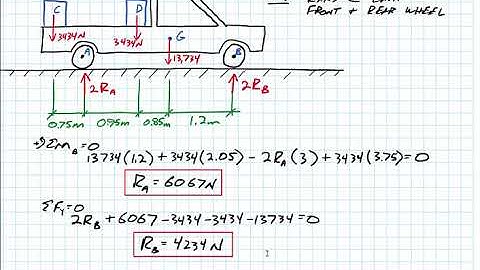 FRONT & REAR WHEEL
C
D
3434N
3434N
G
A
B
13,734
2R_A
2R_B
0.75m
0.95m
0.85m
1.2m
+↺ΣM_B=0
13734(1.2)+3434(2.05)-2R_A(3)+3434(3.75)=0
R_A=6067N
ΣF_Y=0
2R_B+6067-3434-3434-13734=0
R_B=4234N